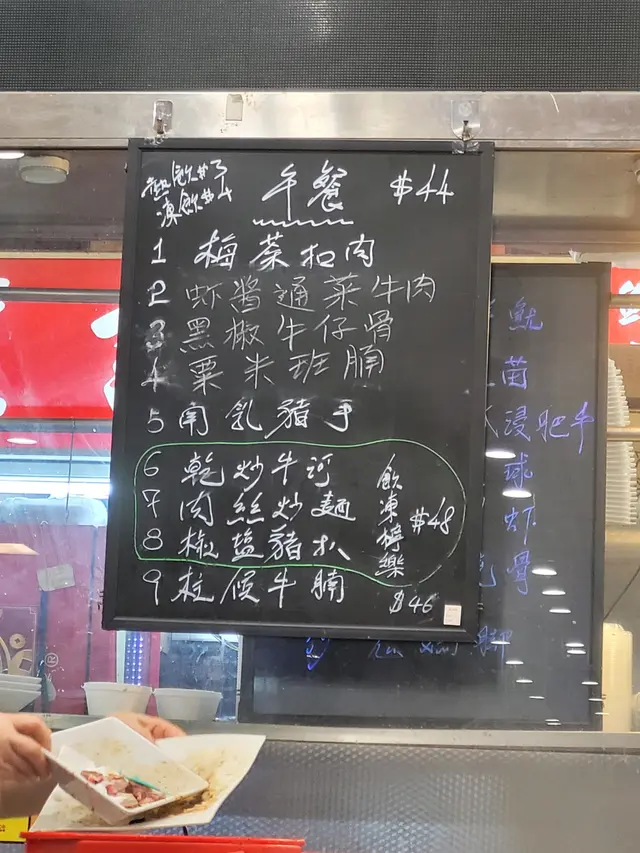 熱飲#3
凍飲#4
午餐 $44
1 梅菜扣肉
2 虾醬通菜牛肉
3 黑椒牛仔骨
4 粟米班腩
5 南乳豬手
6 乾炒牛河
7 肉絲炒麵
8 椒塩豬扒
飲凍檸樂 $48
9 柱侯牛腩 $46
魷
菌
浸肥牛
球
虾
骨
脚